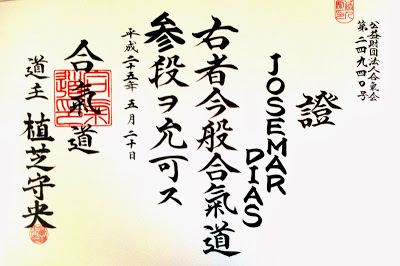 公益財団法人合氣会
第二四九四〇号
證
JOSEMAR
DIAS
右者今般合氣道
参段ヲ允可ス
平成二十五年 五月二十日
合氣道
道主 植芝守央